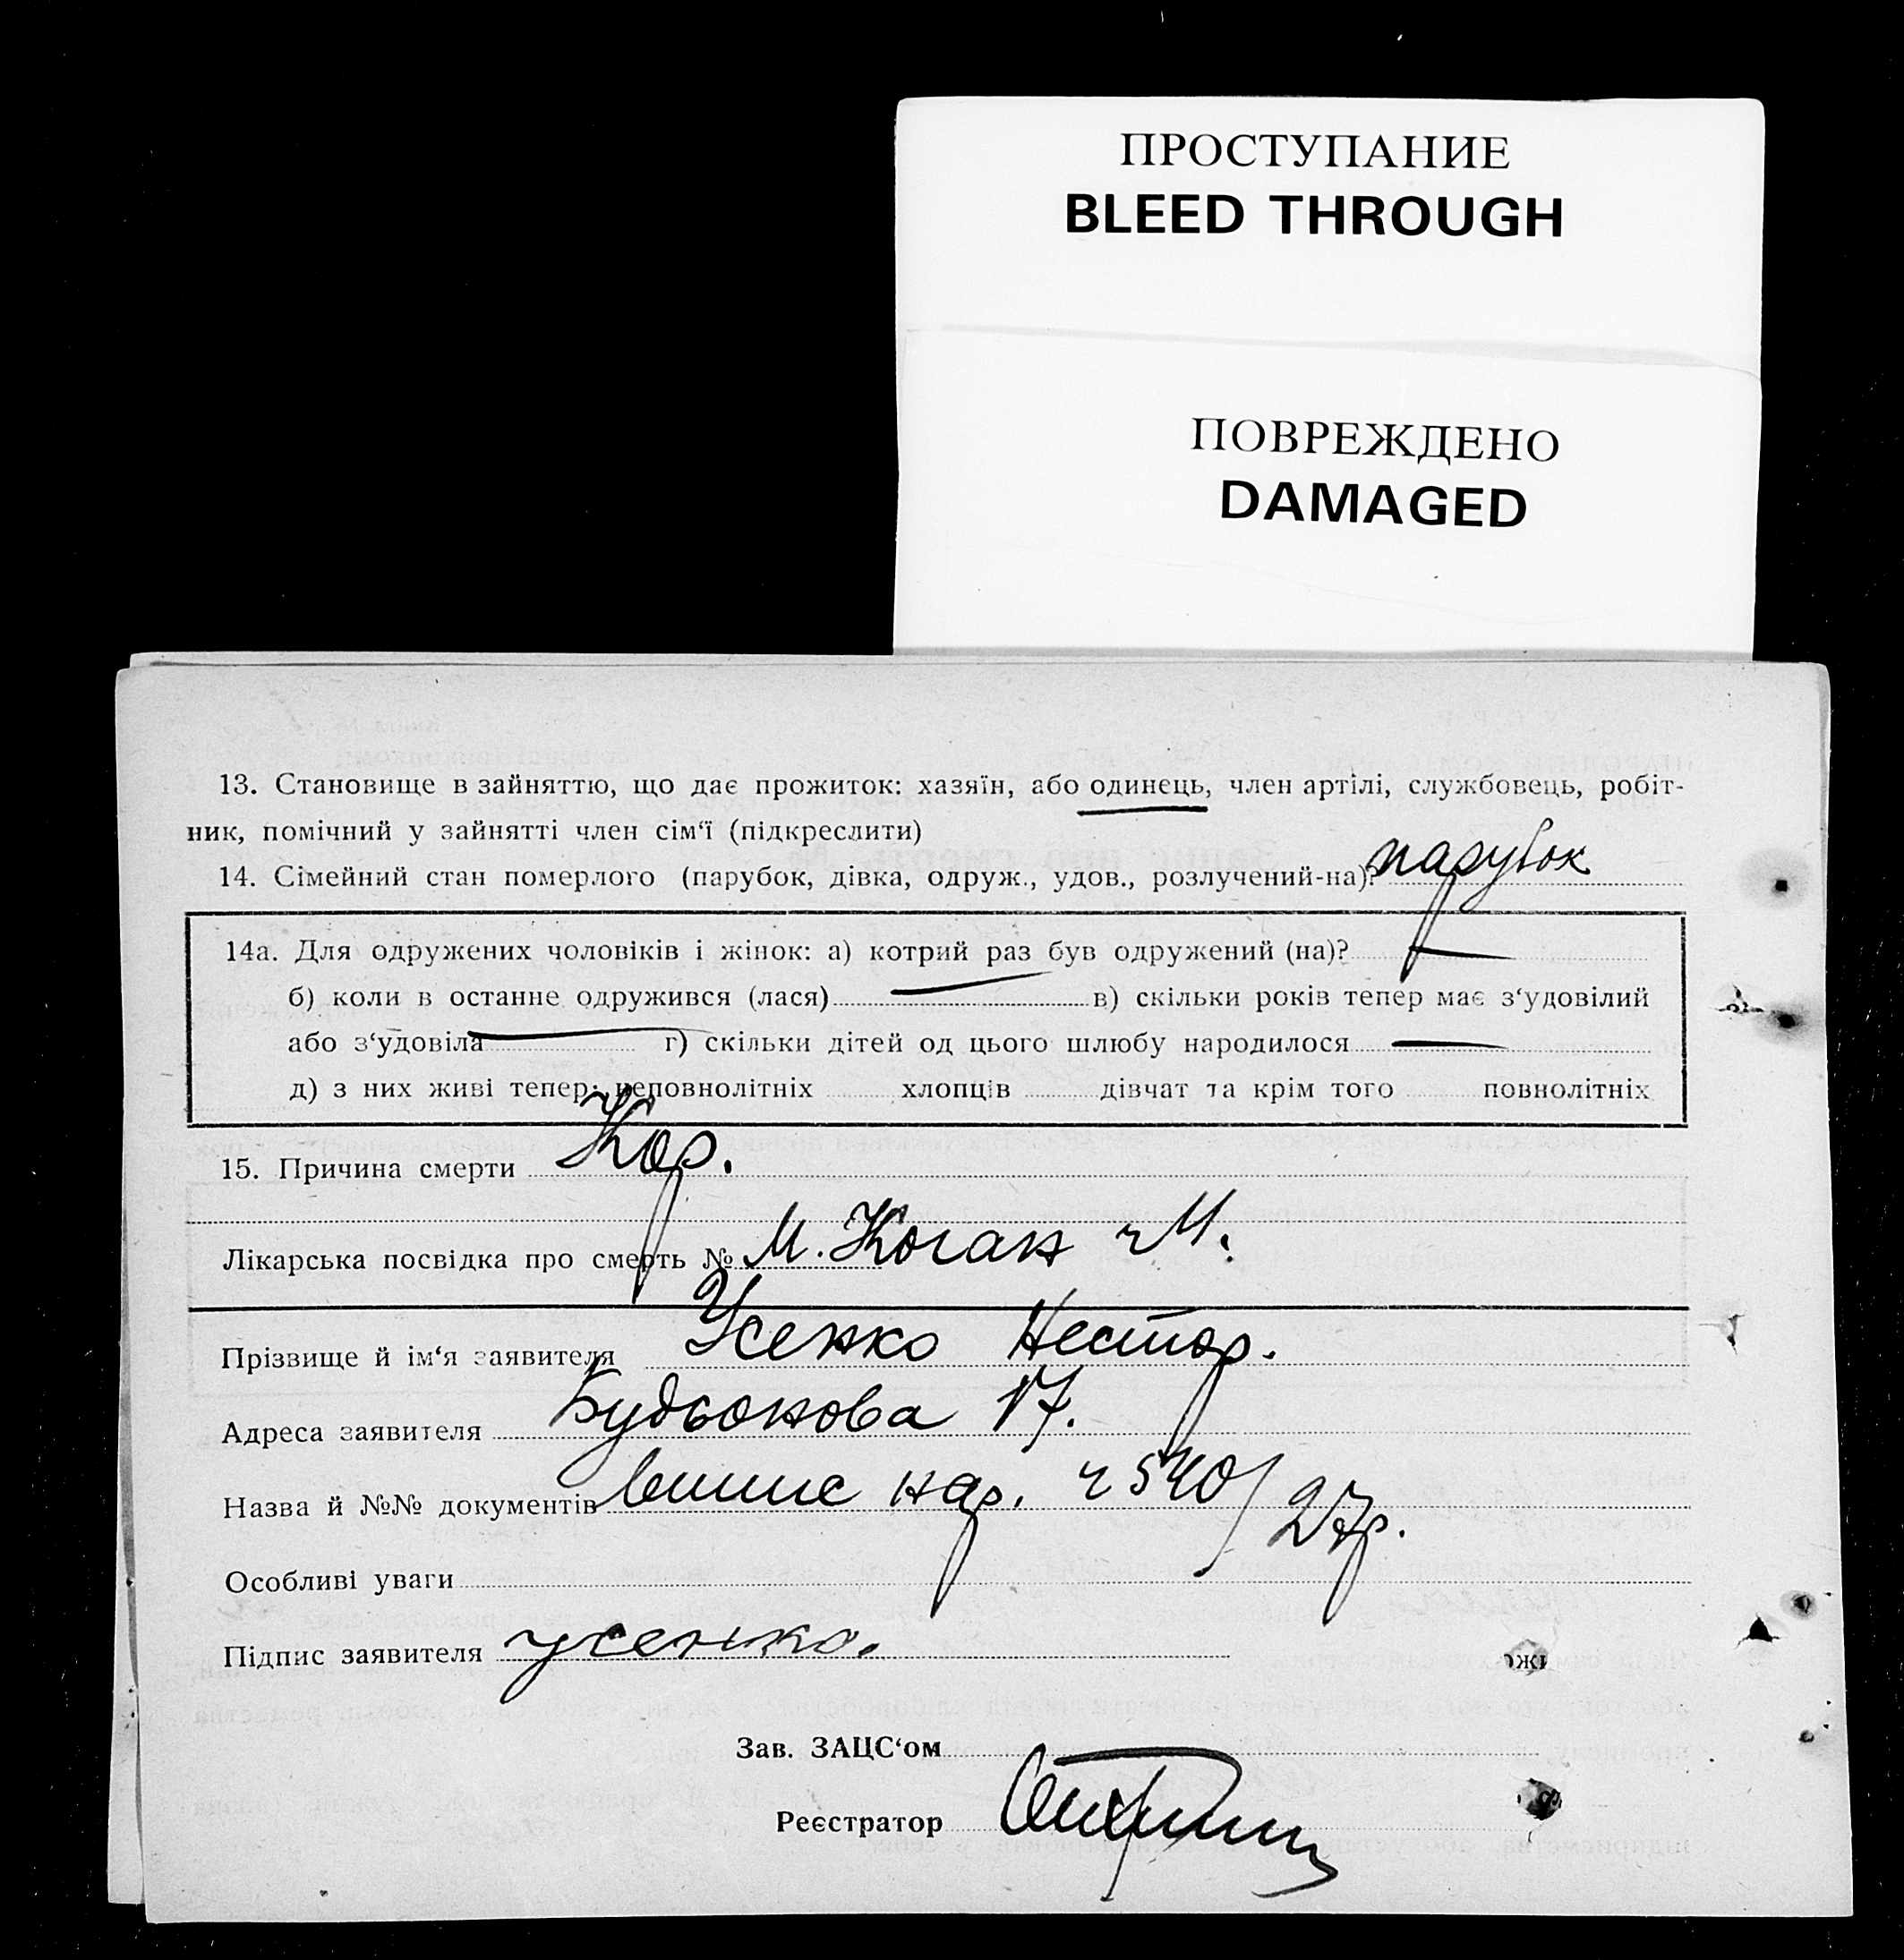 ПРОСТУПАНИЕ
BLEED THROUGH
ПОВРЕЖДЕНО
DAMAGED
13. Становище в зайняттю, що дає прожиток: хазяїн, або одинець, член артілі, службовець, робіт-
ник, помічний у зайнятті член сім‘ї (підкреслити)
14. Сімейний стан померлого (парубок, дівка, одруж., удов., розлучений-на)? парубок
14а. Для одружених чоловіків і жінок: а) котрий раз був одружений (на)? —
б) коли в останнє одружився (лася) — в) скільки років тепер має з‘удовілий
або з‘удовіла — г) скільки дітей од цього шлюбу народилося —
д) з них живі тепер: неповнолітніх хлопців дівчат та крім того повнолітніх
15. Причина смерти Кор.
Лікарська посвідка про смерть № М. Коган ч 11.
Прізвище й ім‘я заявителя Усенко Нестор.
Адреса заявителя Будьонова 17.
Назва й №№ документів випис нар. ч 540/27р.
Особливі уваги
Підпис заявителя усенко.
Зав. ЗАЦС‘ом
Реєстратор